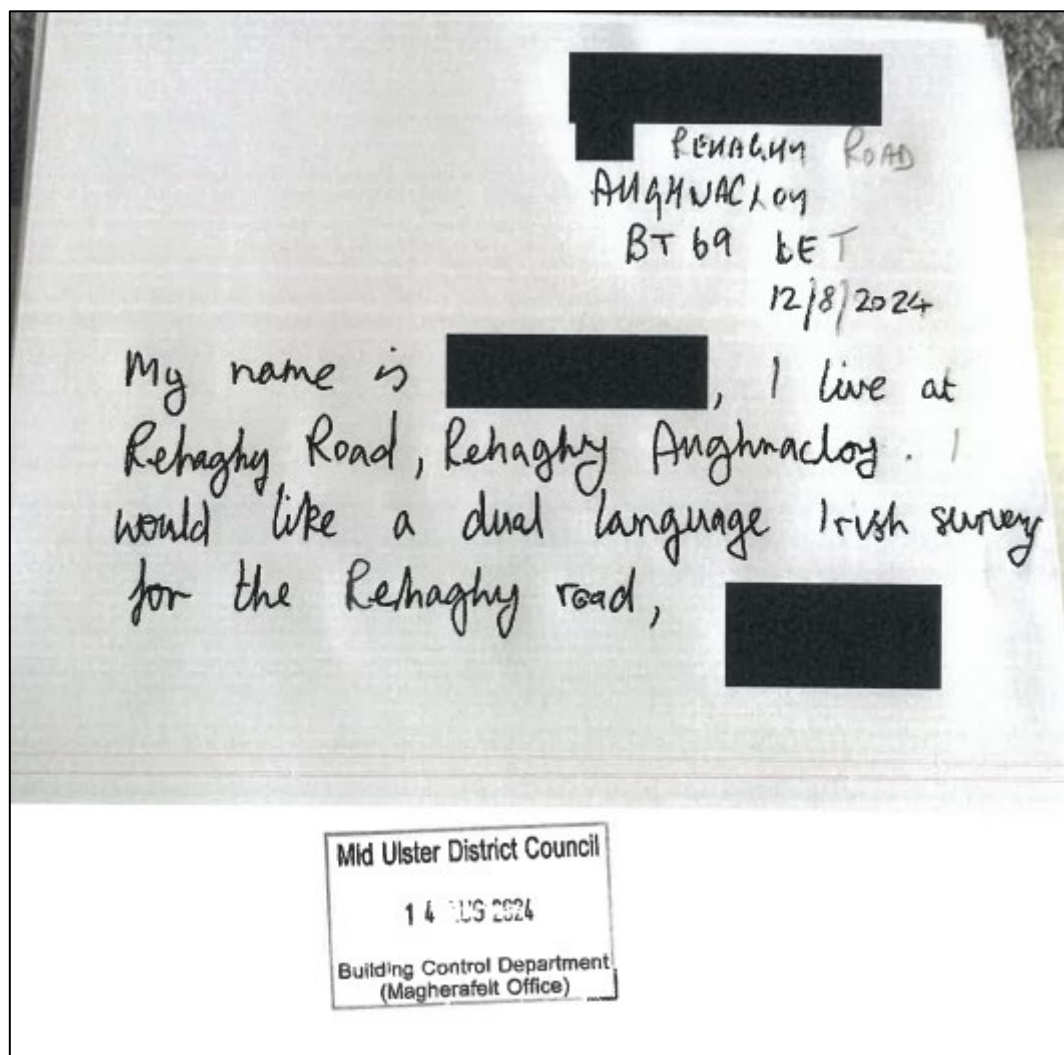 REHAGHY ROAD
AUGHNACLOY
BT69 6ET
12/8/2024
My name is , I live at
Rehaghy Road, Rehaghy Aughnacloy. I
would like a dual language Irish survey
for the Rehaghy road,
Mid Ulster District Council
14 AUG 2024
Building Control Department
(Magherafelt Office)